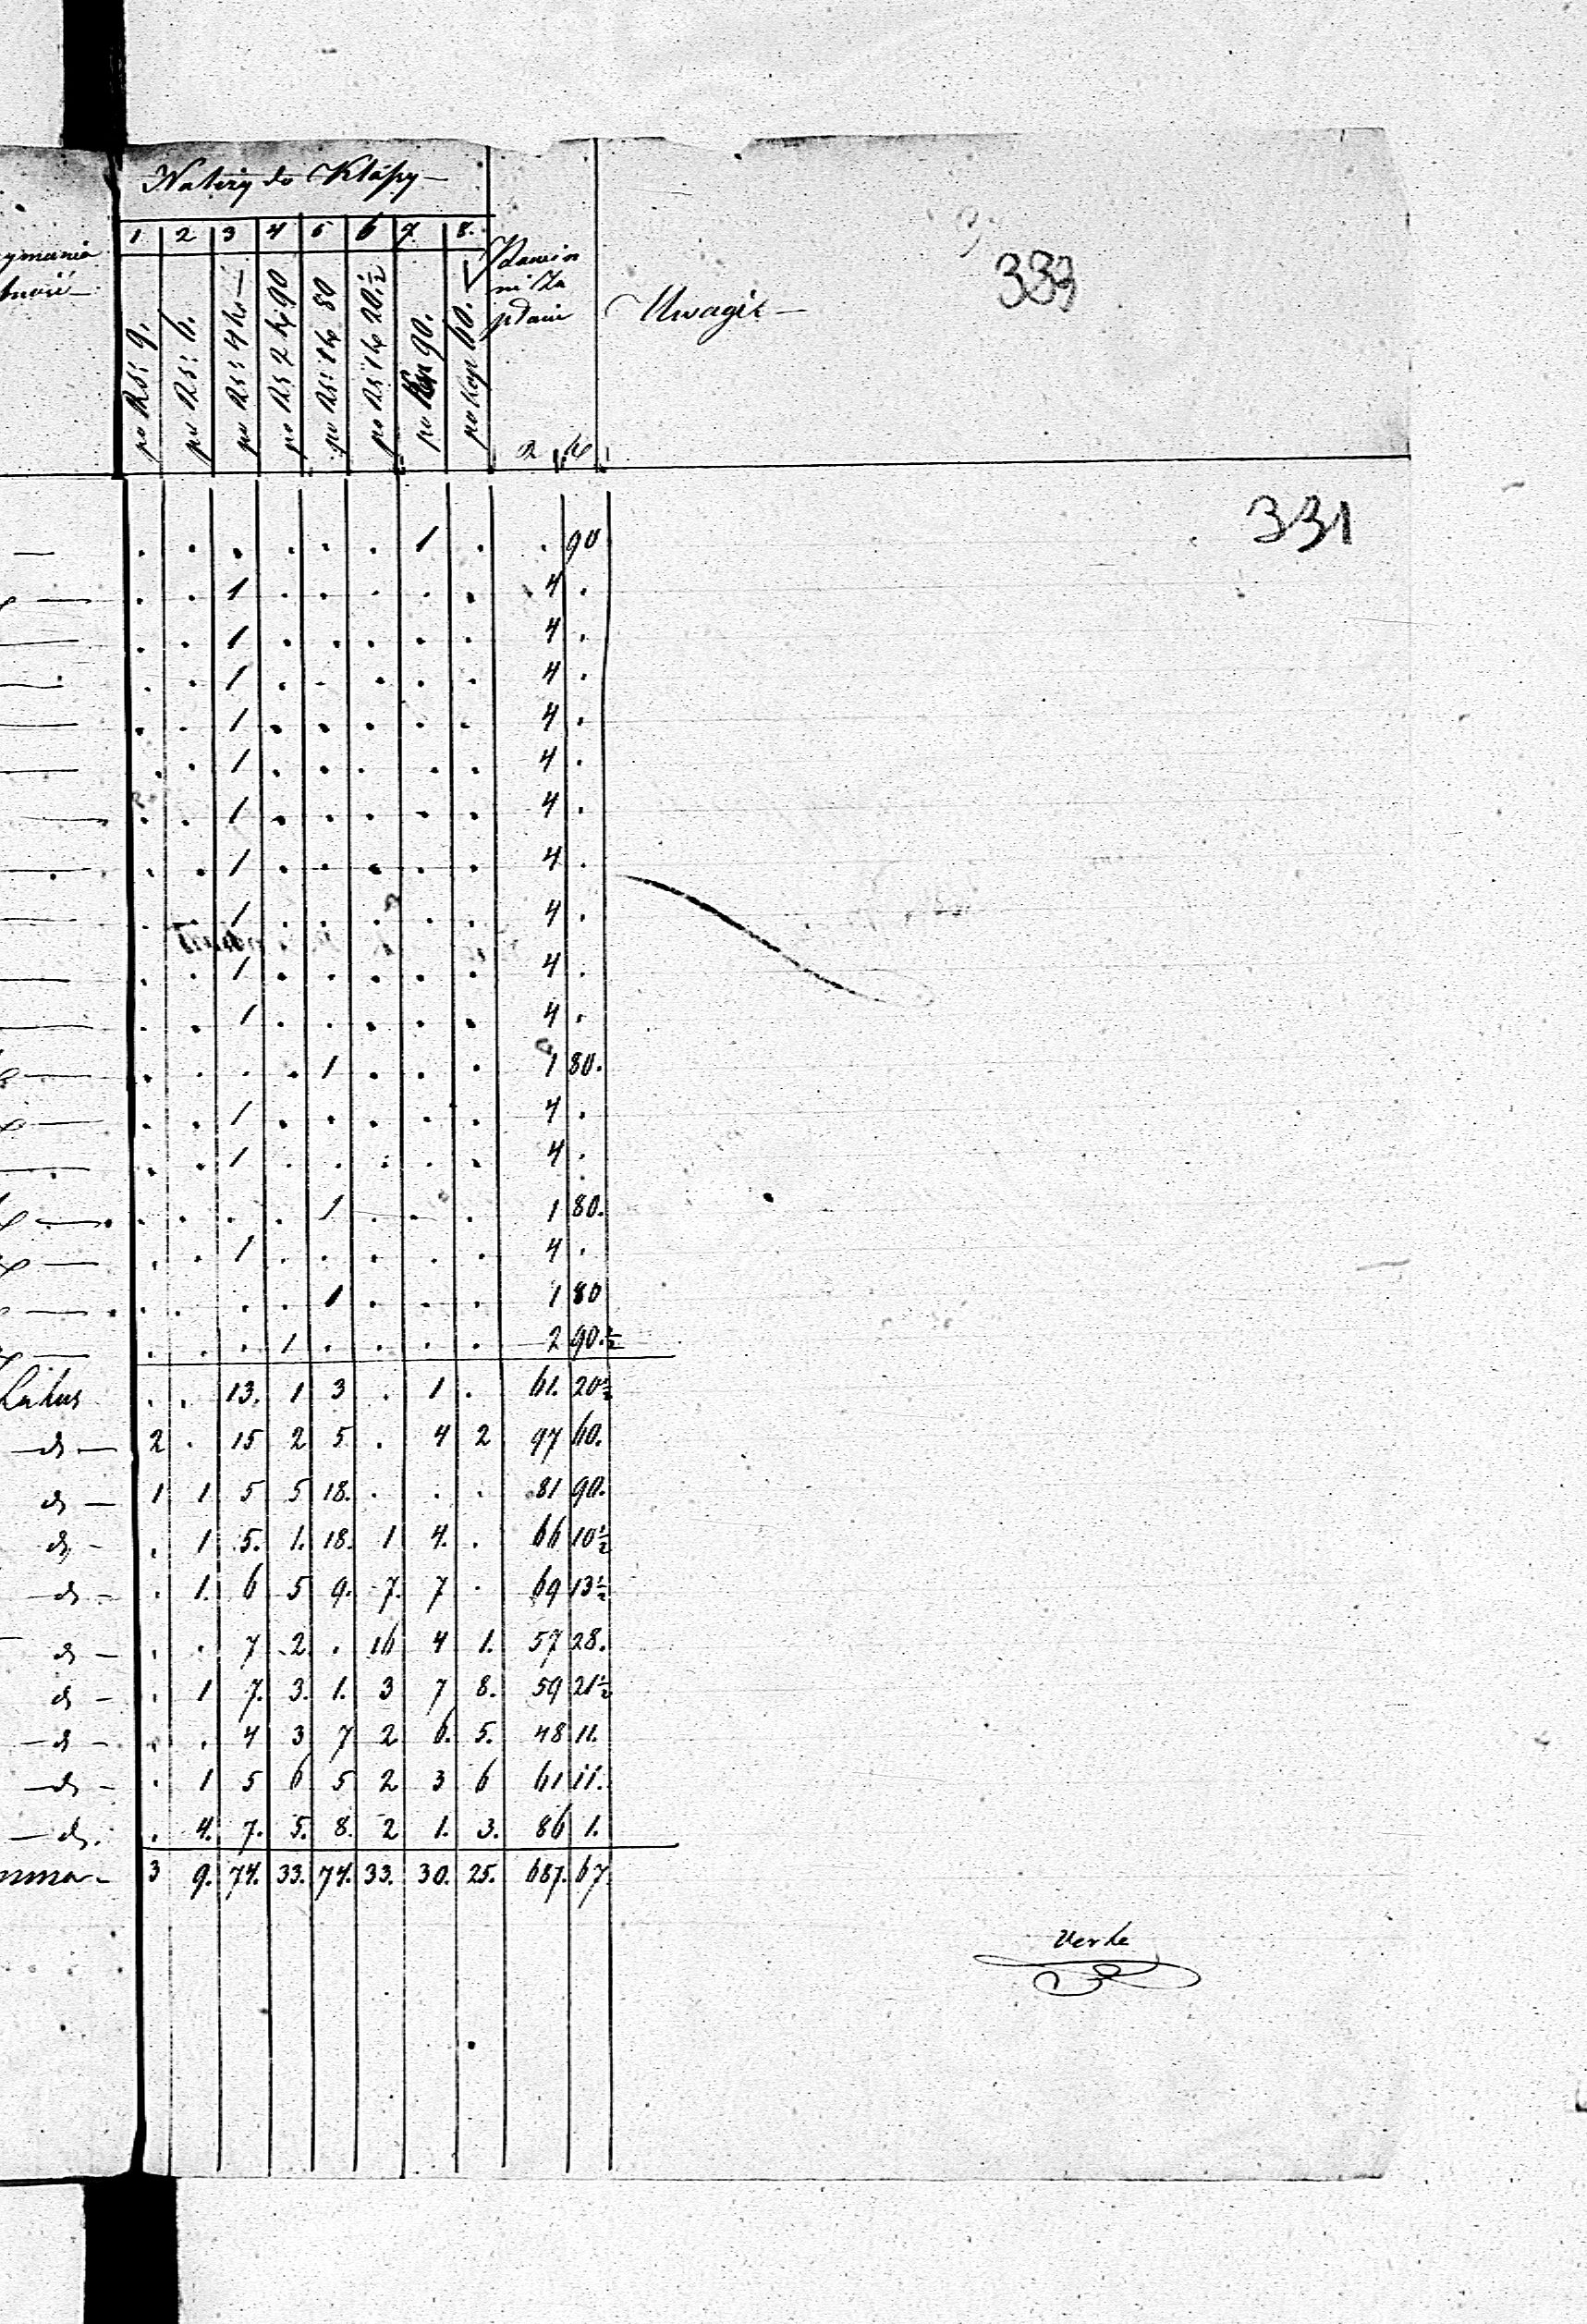 Należy do Klassy —
1 2 3 4 5 6 7. 8.
ymania
po Rs: 9. po Rs: 6. po Rs: 4 ks — po Rs 2 kp 90 po Rs: 1 kp 80 po Rs 1 kp 20 ½ po Kop 90. po kop 60.
Uwagi —
337
331
. . . . . . 1 . . 90
. . 1 . . . . . 4 .
. . 1 . . . . . 4 .
. . 1 . . . . . 4 .
. . 1 . . . . . 4 .
. . 1 . . . . . 4 .
. . 1 . . . . . 4 .
. . 1 . . . . . 4 .
. . 1 . . . . . 4 .
. . 1 . . . . . 4 .
. . 1 . . . . . 4 .
. . . . 1 . . . 1 80.
. . 1 . . . . . 4 .
. . 1 . . . . . 4 .
. . . . 1 . . . 1 80.
. . 1 . . . . . 4 .
. . . . 1 . . . 1 80
. . . 1 . . . . 2 90.½
Latus . . 13. 1 3 . 1 . 61. 20½
— d — 2 . 15 2 5 . 4 2 97 60.
d — 1 1 5 5 18. . . . 81 90.
d — . 1 5. 1. 18. 1 4. . 66 10½
— d — . 1. 6 5 9. 7. 7 . 69 13½
d — . . 7 2. . 16 4 1. 57 28.
d — . 1 7. 3. 1. 3 7 8. 59 21½
— d — . . 4 3 7 2 6. 5. 48 11.
— d — . 1 5 6 5 2 3 6 61 11.
— d. . 4. 7. 5. 8. 2 1. 3. 86 1.
mma — 3 9. 74. 33. 74. 33. 30. 25. 687. 67
Verte